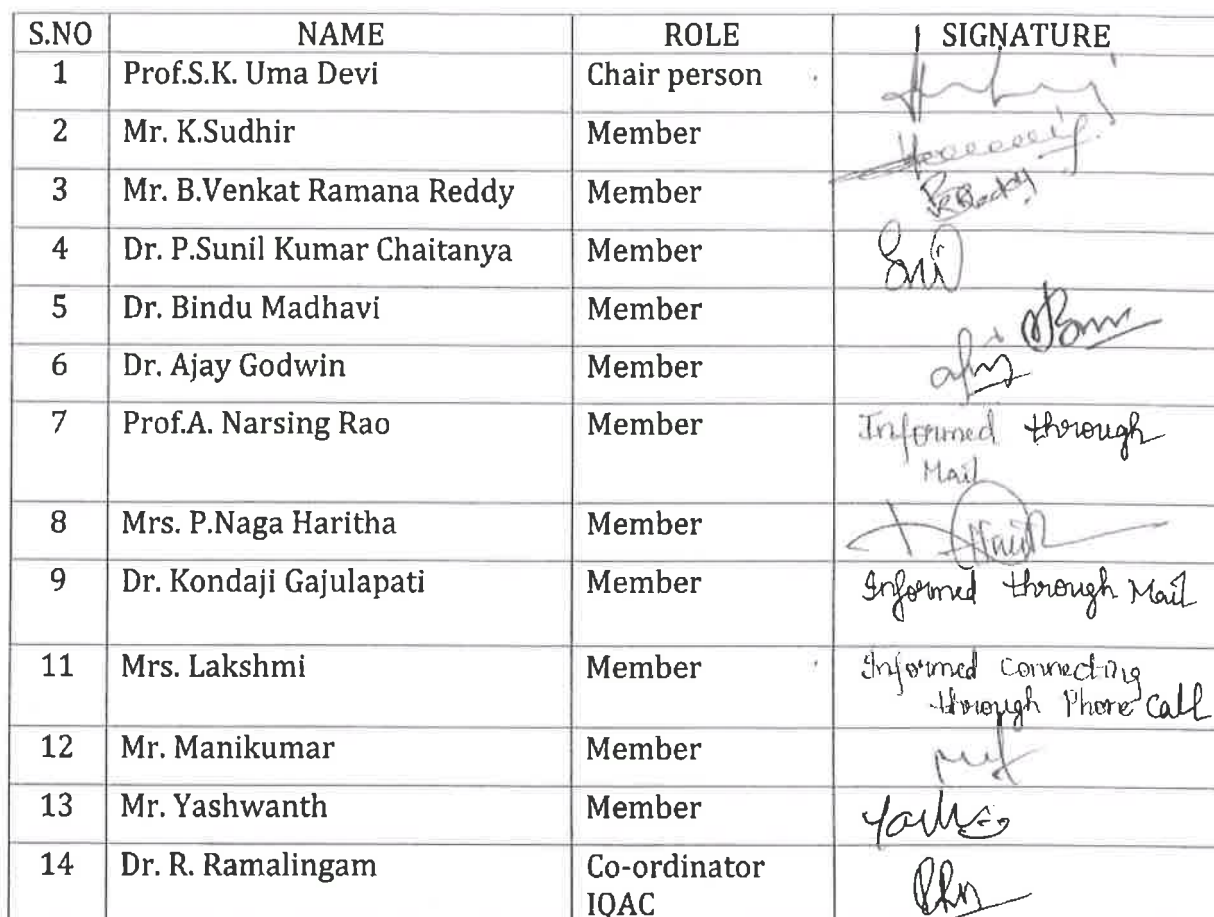 S.NO NAME ROLE SIGNATURE
1 Prof.S.K. Uma Devi Chair person
2 Mr. K.Sudhir Member
3 Mr. B.Venkat Ramana Reddy Member
4 Dr. P.Sunil Kumar Chaitanya Member
5 Dr. Bindu Madhavi Member
6 Dr. Ajay Godwin Member
7 Prof.A. Narsing Rao Member Informed through
Mail
8 Mrs. P.Naga Haritha Member
9 Dr. Kondaji Gajulapati Member Informed through Mail
11 Mrs. Lakshmi Member Informed Connecting
through Phone Call
12 Mr. Manikumar Member
13 Mr. Yashwanth Member
14 Dr. R. Ramalingam Co-ordinator
IQAC